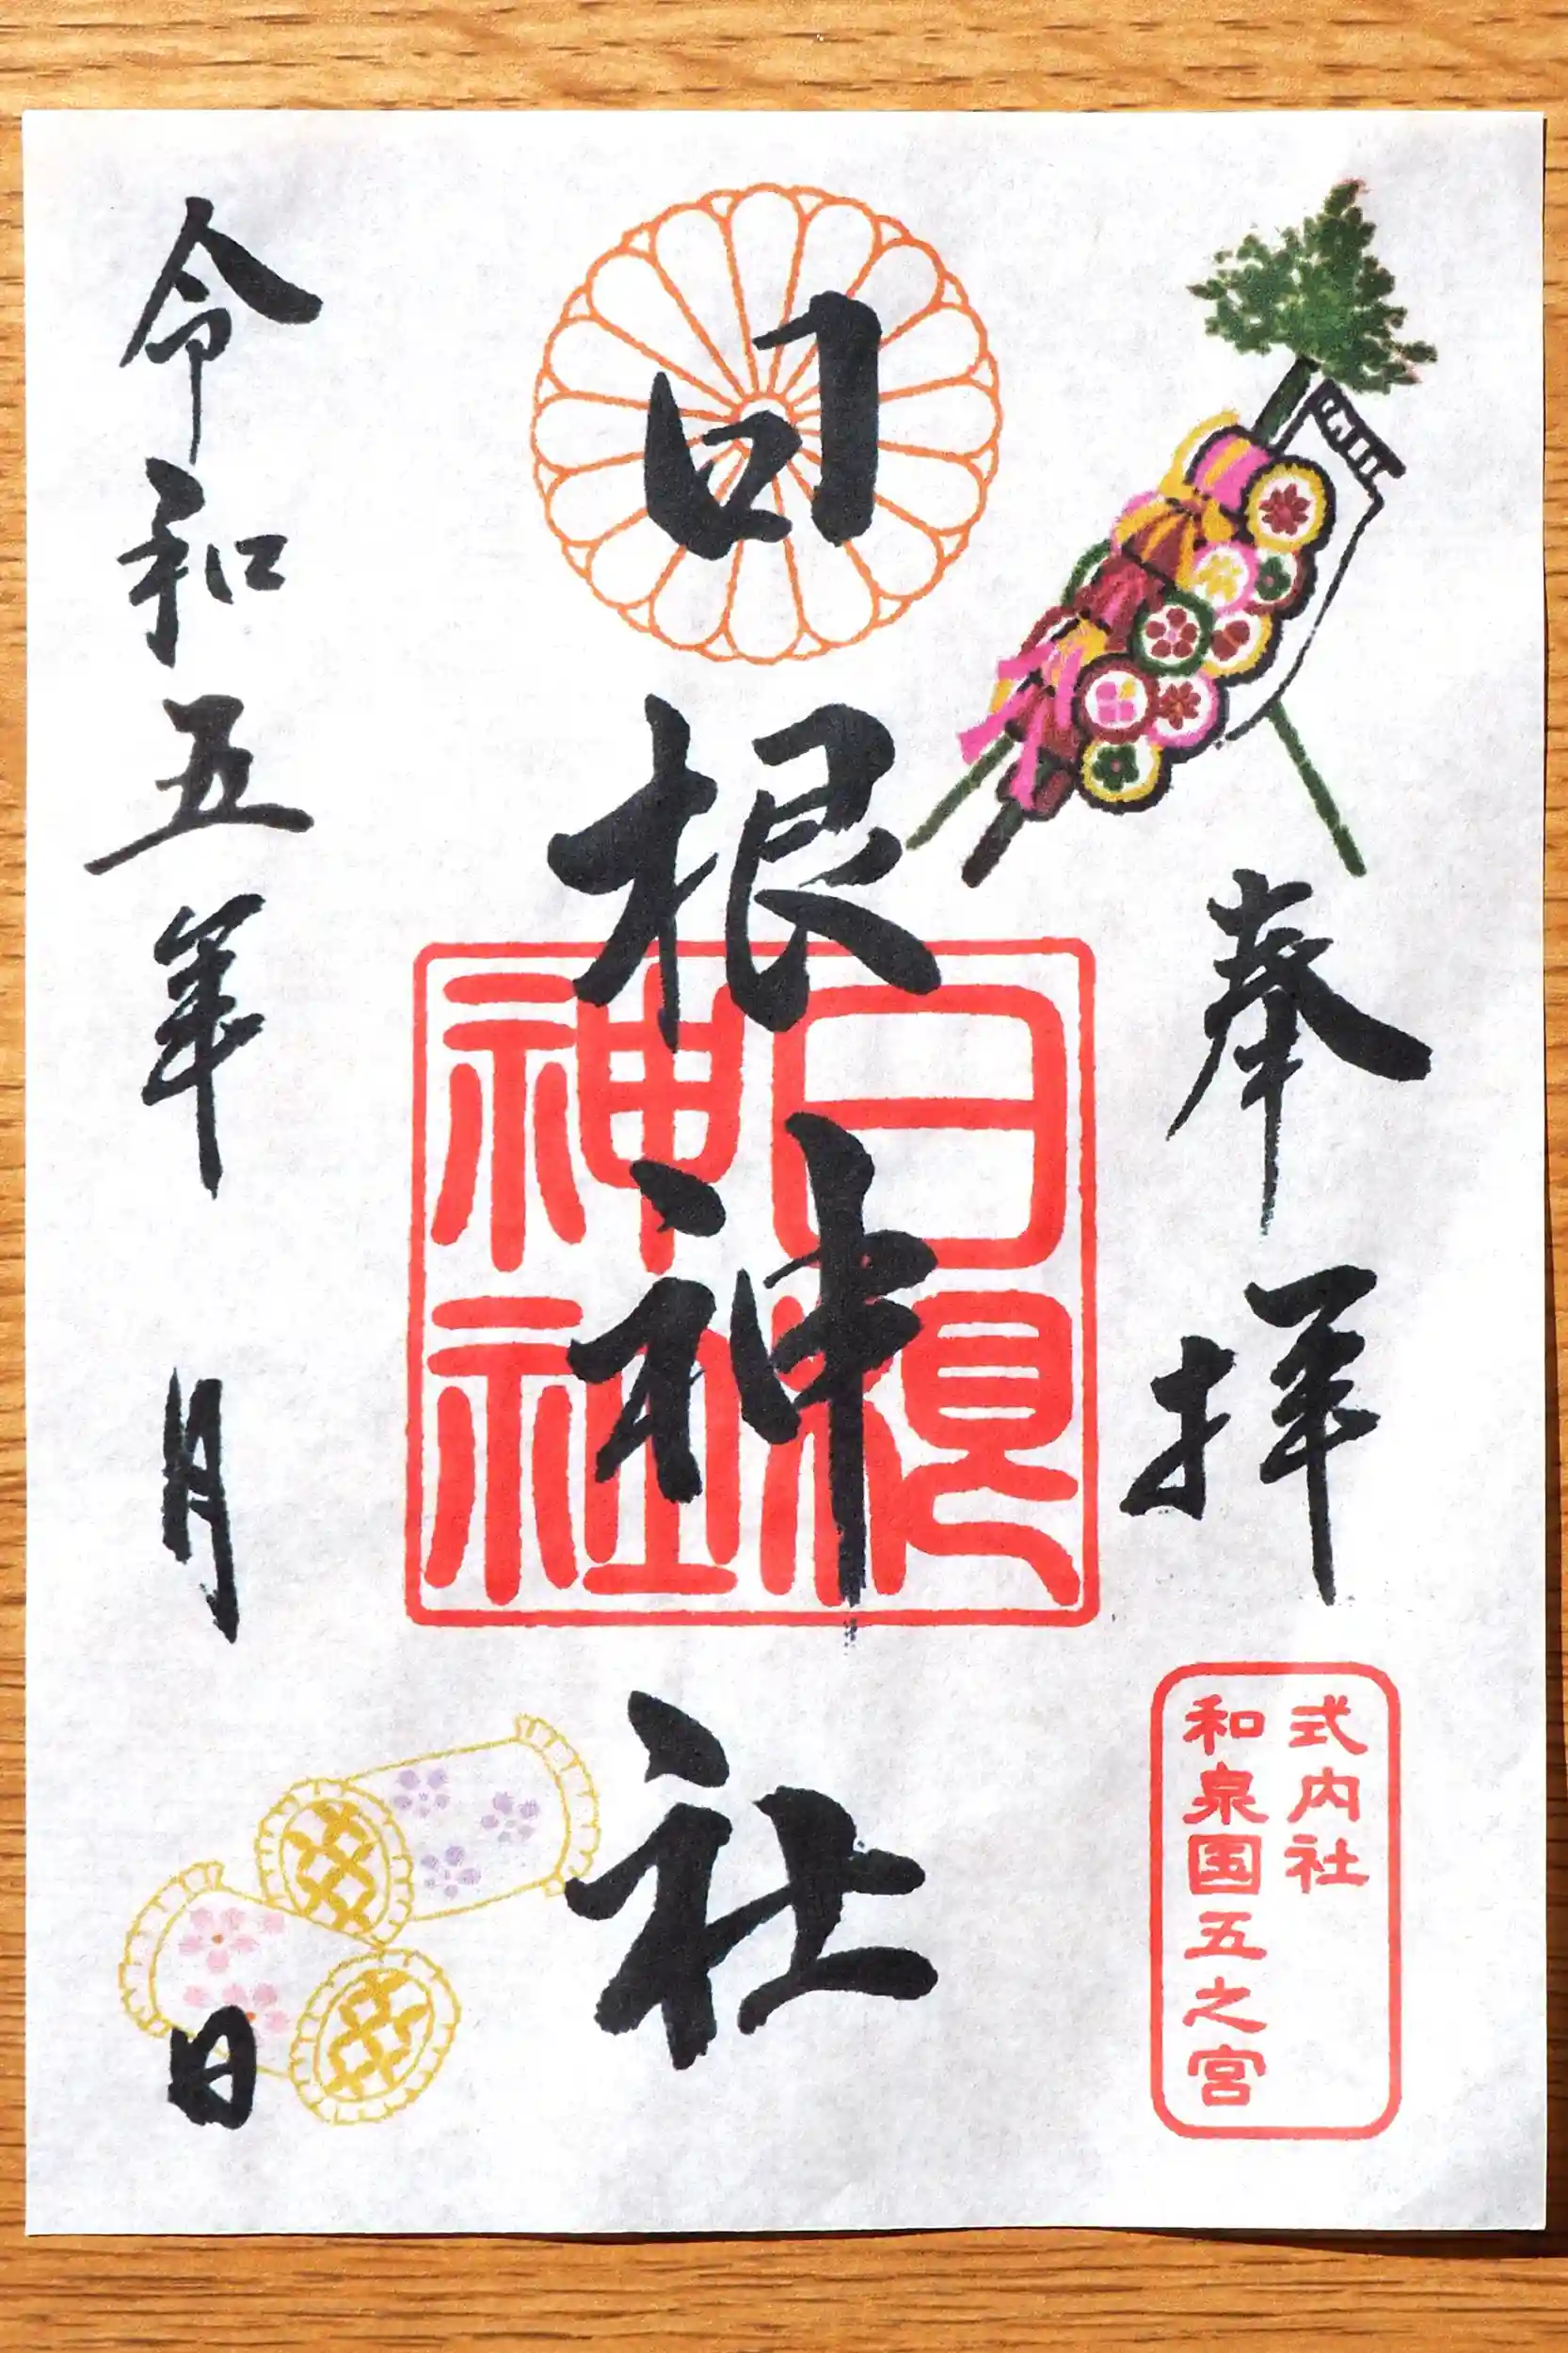 奉拝
式内社
和泉国五之宮
日根神社
日根神社
令和五年 月 日